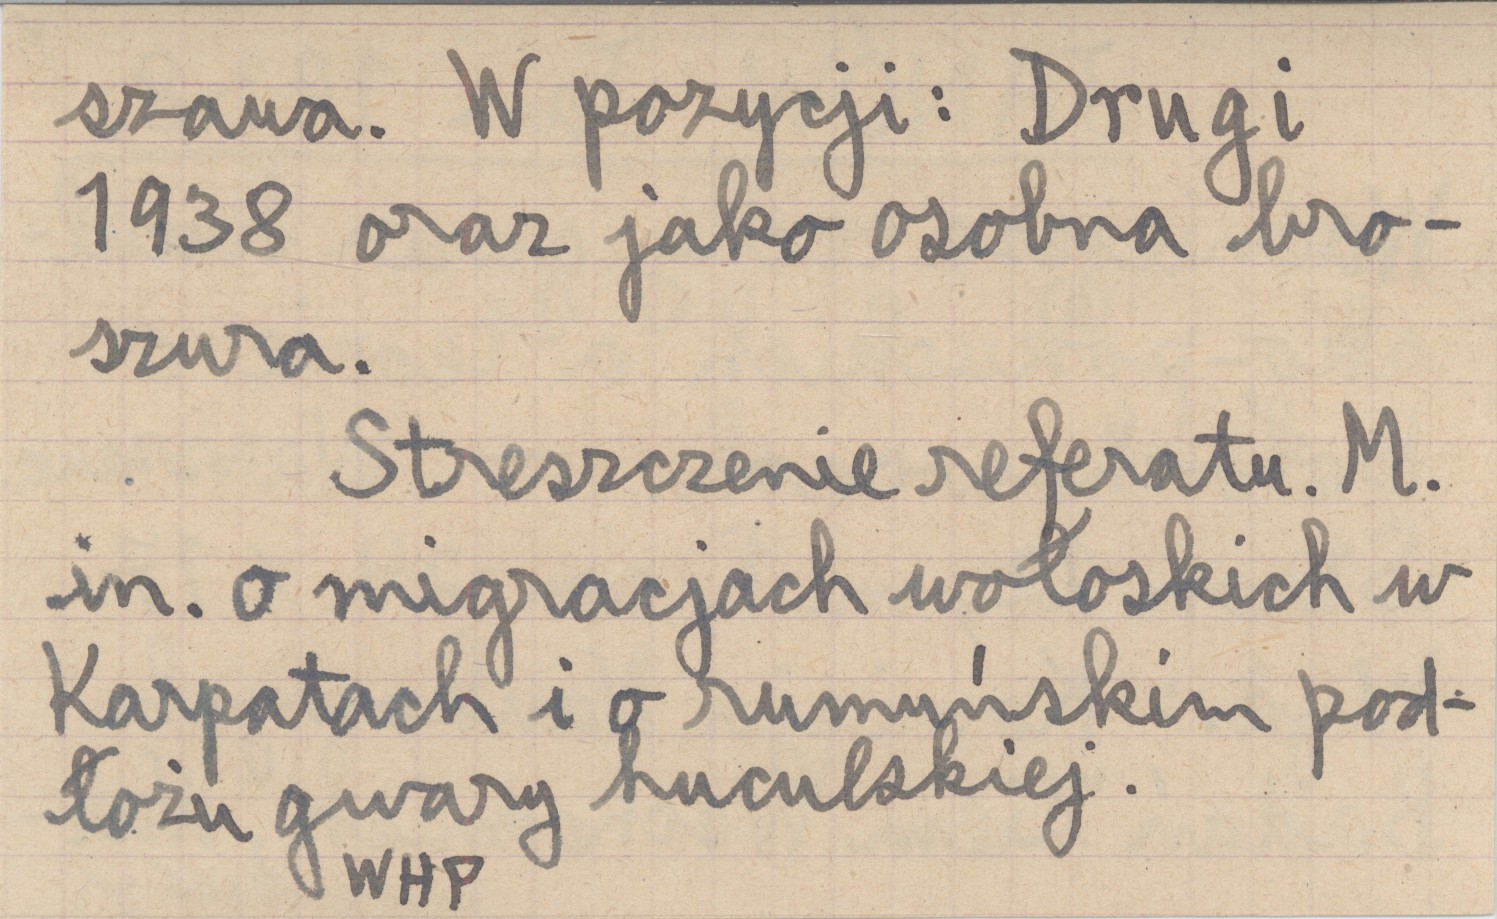 szawa. W pozycji: Drugi
1938 oraz jako osobna bro-
szura.
Streszczenie referatu. M.
in. o migracjach wołoskich w
Karpatach i o rumuńskim pod-
łożu gwary huculskiej.
WHP